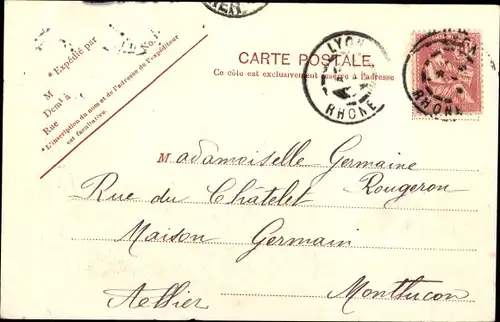 * Expédié par
M
Demt à
Rue No
*L'inscription du nom et de l'adresse de l'expéditeur
est facultative.
CARTE POSTALE
Ce côté est exclusivement réservé à l'adresse
LYON
RHONE
RHONE
Madamoiselle Germaine
Rougeron
Rue du Châtelet
Maison Germain
Allier Montlucon